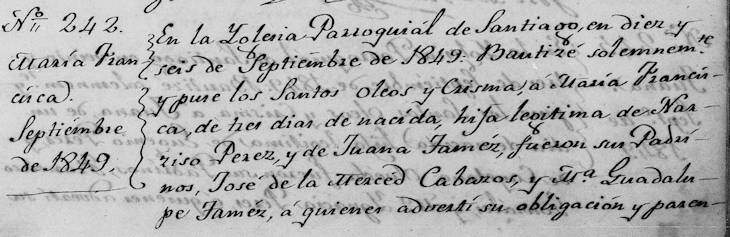 Nº 242.
María Fran
cisca.
Septiembre
de 1849.
En la Yglesia Parroquiál de Santiago, en diez y
seis de Septiembre de 1849. Bautizé solemnem.te
y puse los Santos Oleos y Crisma, á María Francis-
ca, de tres dias de nacida, hija legitima de Nar-
ciso Perez, y de Juana Taméz, fueron sus Padri
nos, José de la Merced Cabazos, y M.a Guadalu-
pe Taméz, á quienes advertí su obligación y paren-